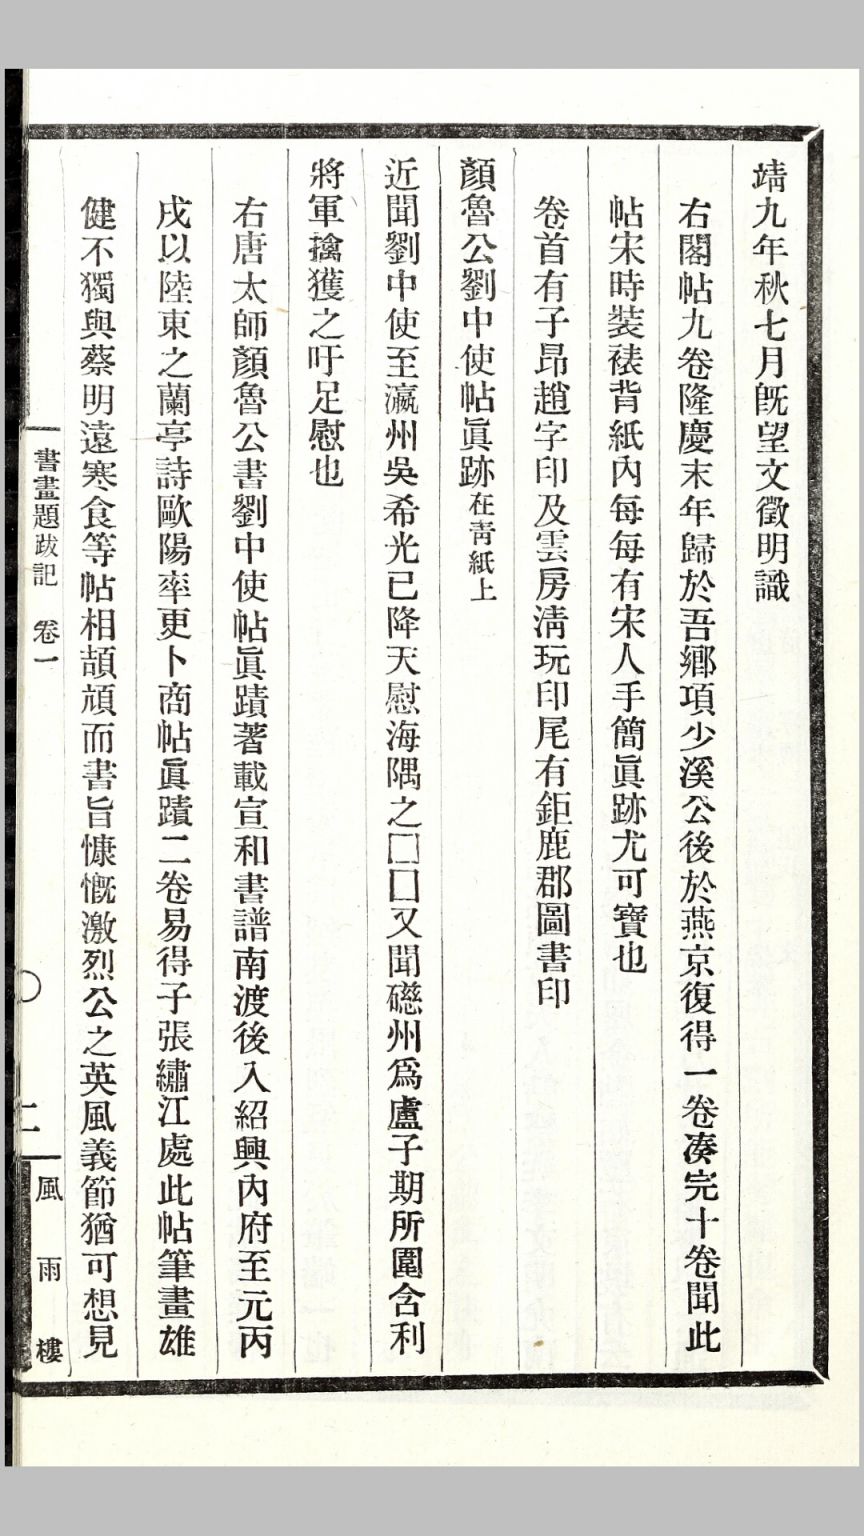 靖九年秋七月旣望文徵明識
右閣帖九卷隆慶末年歸於吾鄕項少溪公後於燕京復得一卷湊完十卷聞此
帖宋時裝裱背紙內每每有宋人手簡眞跡尤可寶也
卷首有子昂趙字印及雲房淸玩印尾有鉅鹿郡圖書印
顏魯公劉中使帖眞跡在靑紙上
近聞劉中使至瀛州吳希光已降天慰海隅之□□又聞磁州爲盧子期所圍含利
將軍擒獲之吁足慰也
右唐太師顏魯公書劉中使帖眞蹟著載宣和書譜南渡後入紹興內府至元丙
戌以陸柬之蘭亭詩歐陽率更卜商帖眞蹟二卷易得子張繡江處此帖筆畫雄
健不獨與蔡明遠寒食等帖相頡頏而書旨慷慨激烈公之英風義節猶可想見
書畫題跋記 卷一
二
風雨樓